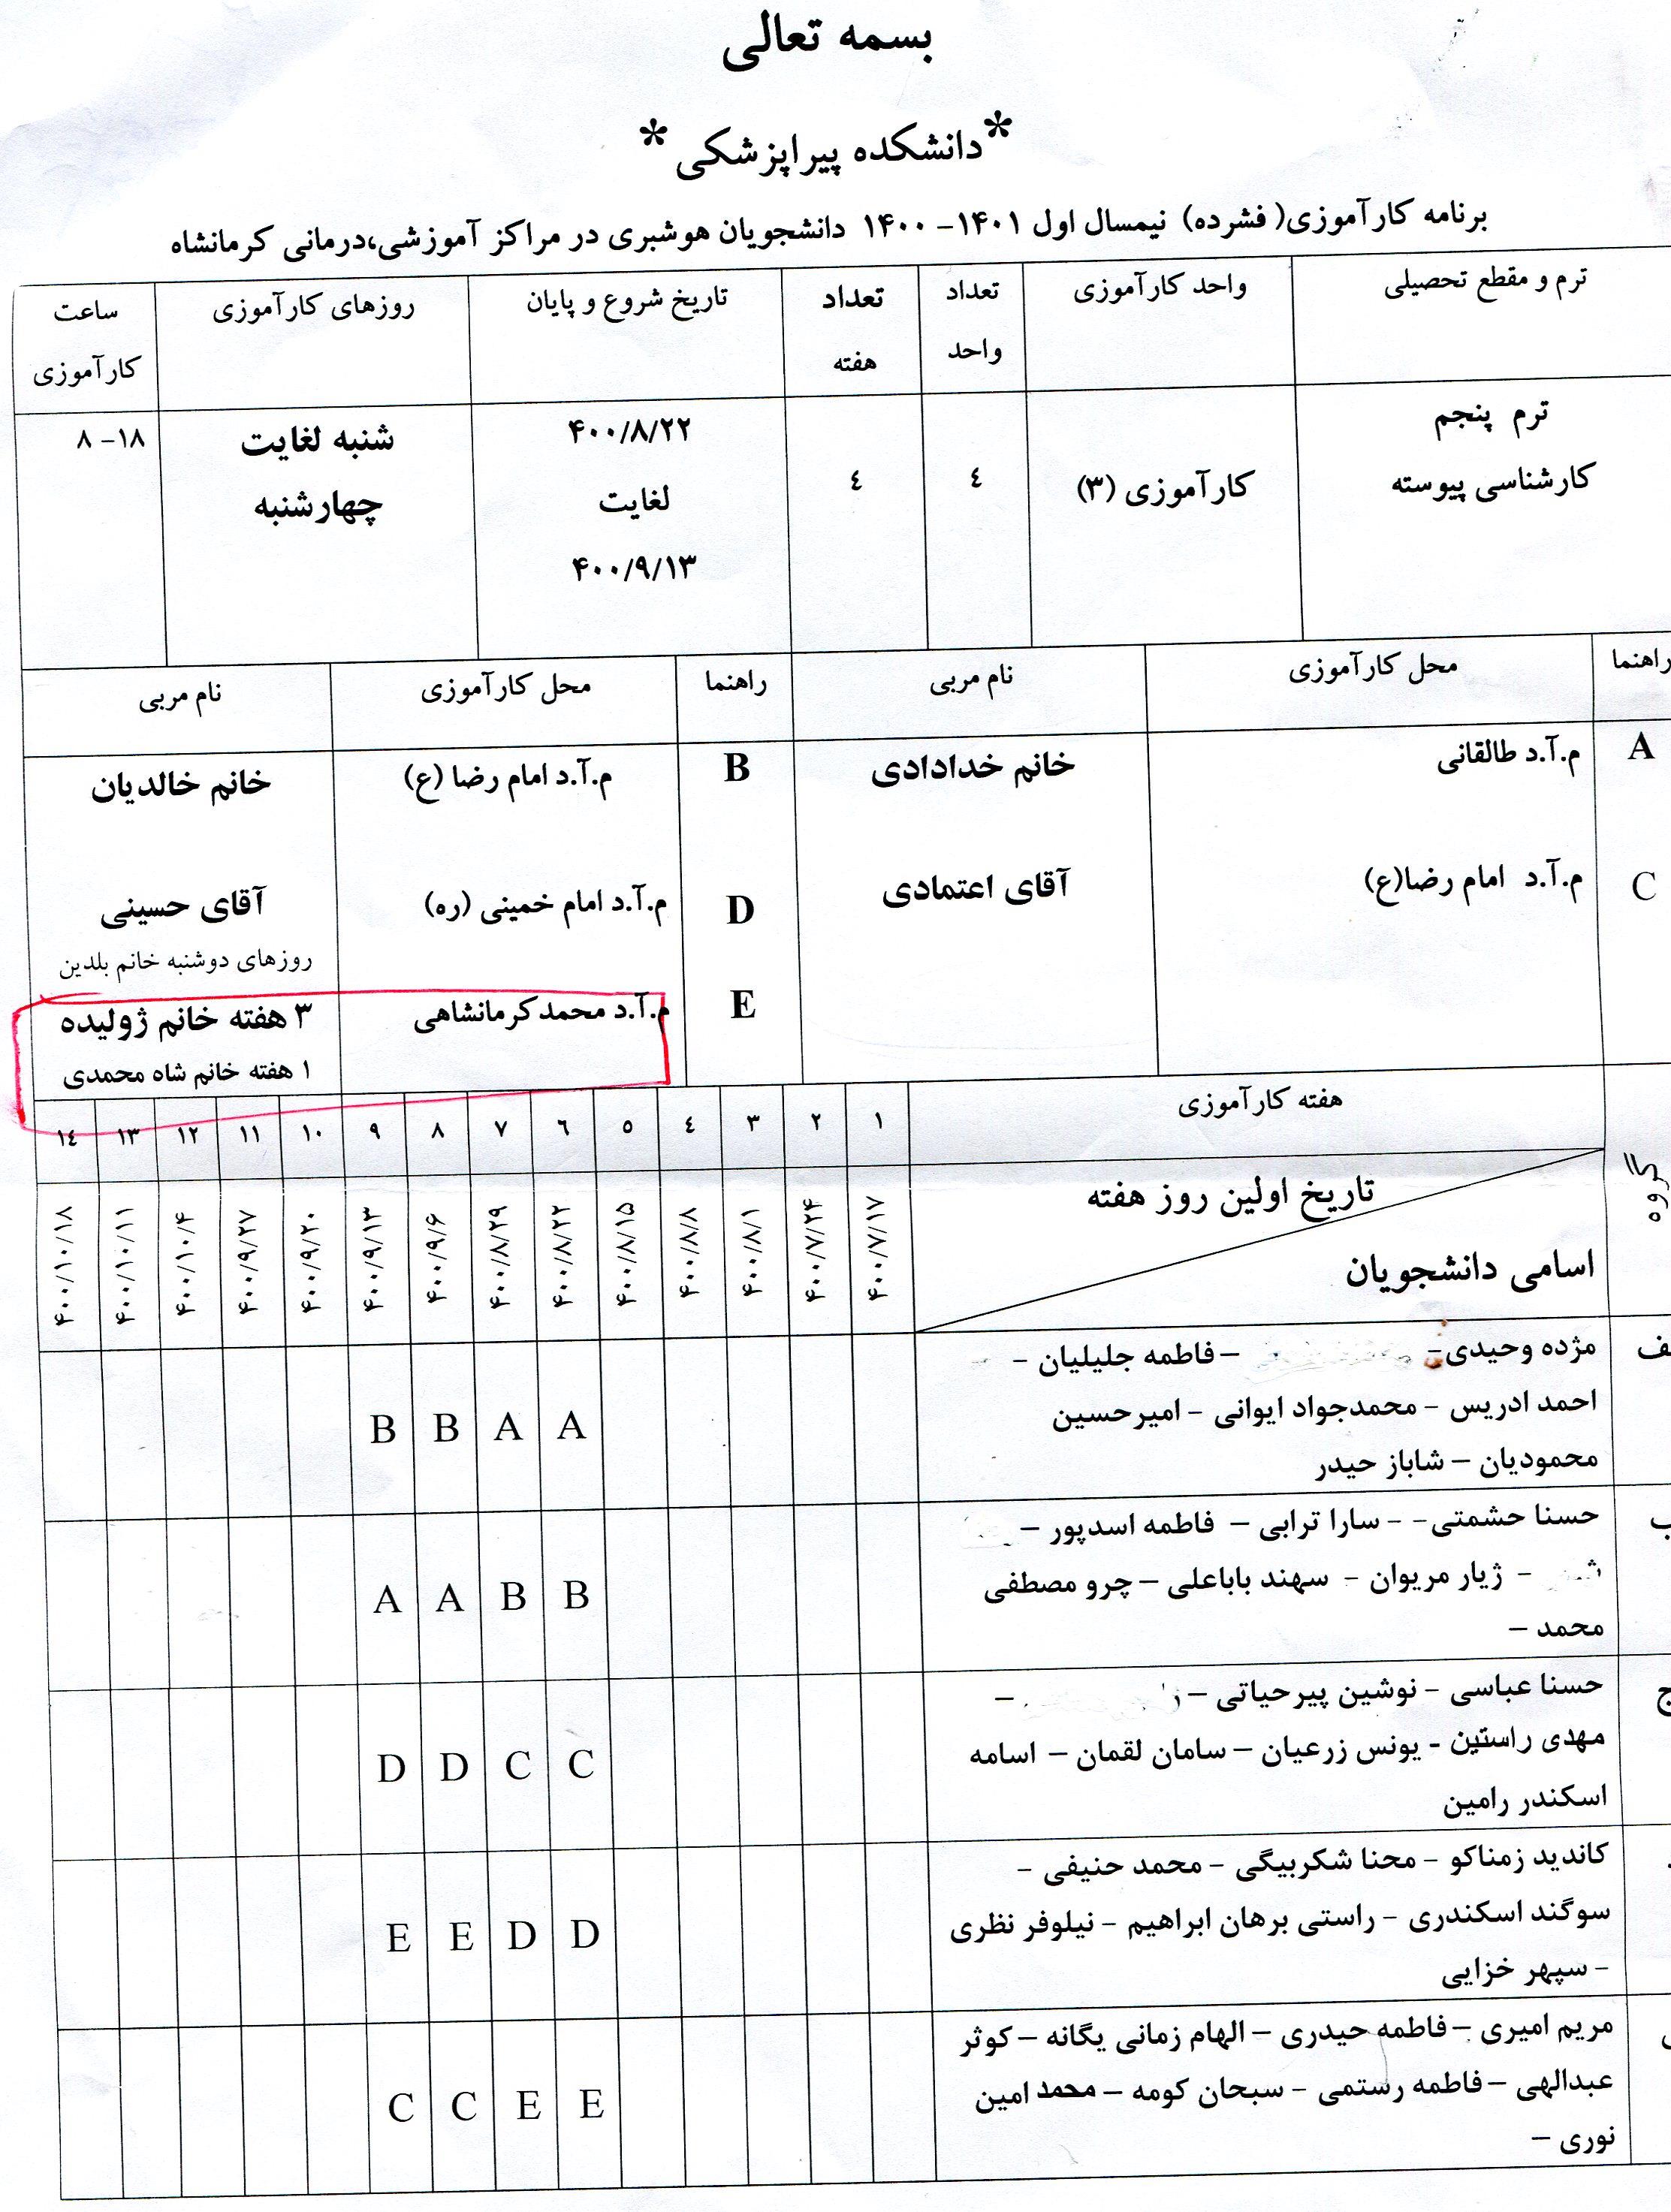 بسمه تعالی
*دانشکده پیراپزشکی*
برنامه کارآموزی( فشرده) نیمسال اول ۱۴۰۱- ۱۴۰۰ دانشجویان هوشبری در مراکز آموزشی،درمانی کرمانشاه
ترم و مقطع تحصیلی
واحد کارآموزی
تعداد
واحد
تعداد
هفته
تاریخ شروع و پایان
روزهای کارآموزی
ساعت
کارآموزی
ترم پنجم
کارشناسی پیوسته
کارآموزی (۳)
٤
٤
۴۰۰/۸/۲۲
لغایت
۴۰۰/۹/۱۳
شنبه لغایت
چهارشنبه
۸ -۱۸
راهنما
محل کارآموزی
نام مربی
راهنما
محل کارآموزی
نام مربی
A
م.آ.د طالقانی
خانم خدادادی
B
م.آ.د امام رضا (ع)
خانم خالدیان
C
م.آ.د امام رضا(ع)
آقای اعتمادی
D
م.آ.د امام خمینی (ره)
آقای حسینی
روزهای دوشنبه خانم بلدین
E
م.آ.د محمدکرمانشاهی
۳ هفته خانم ژولیده
۱ هفته خانم شاه محمدی
گروه
هفته کارآموزی
۱ ۲ ۳ ٤ ٥ ٦ ۷ ۸ ۹ ۱۰ ۱۱ ۱۲ ۱۳ ۱٤
تاریخ اولین روز هفته
اسامی دانشجویان
۴۰۰/۷/۱۷
۴۰۰/۷/۲۴
۴۰۰/۸/۱
۴۰۰/۸/۸
۴۰۰/۸/۱۵
۴۰۰/۸/۲۲
۴۰۰/۸/۲۹
۴۰۰/۹/۶
۴۰۰/۹/۱۳
۴۰۰/۹/۲۰
۴۰۰/۹/۲۷
۴۰۰/۱۰/۴
۴۰۰/۱۰/۱۱
۴۰۰/۱۰/۱۸
مژده وحیدی- –فاطمه جلیلیان –
احمد ادریس – محمدجواد ایوانی – امیرحسین
محمودیان – شاباز حیدر
A A B B
حسنا حشمتی- - سارا ترابی – فاطمه اسدپور –
- ژیار مریوان - سهند باباعلی – چرو مصطفی
محمد –
B B A A
ج
حسنا عباسی – نوشین پیرحیاتی – –
مهدی راستین - یونس زرعیان – سامان لقمان – اسامه
اسکندر رامین
C C D D
کاندید زمناکو – محنا شکربیگی – محمد حنیفی –
سوگند اسکندری – راستی برهان ابراهیم – نیلوفر نظری
– سپهر خزایی
D D E E
مریم امیری – فاطمه حیدری – الهام زمانی یگانه – کوثر
عبدالهی – فاطمه رستمی – سبحان کومه – محمد امین
نوری –
E E C C